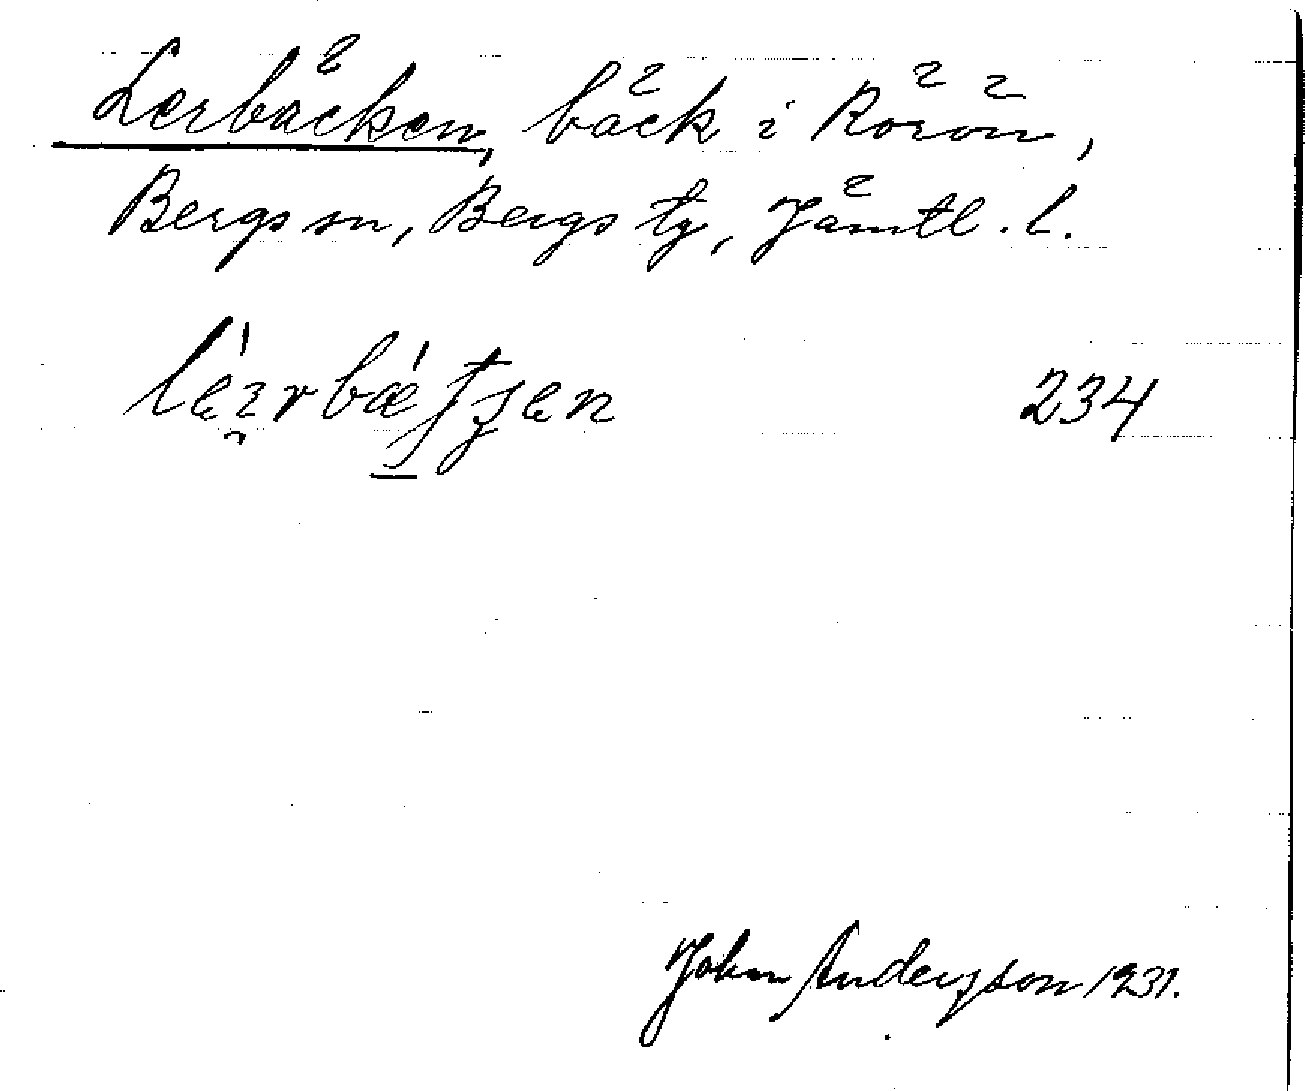 Lerbäcken, bäck i Rörön,
Bergs sn, Bergs tg, Jämtl. l.
234
John Andersson 1931.